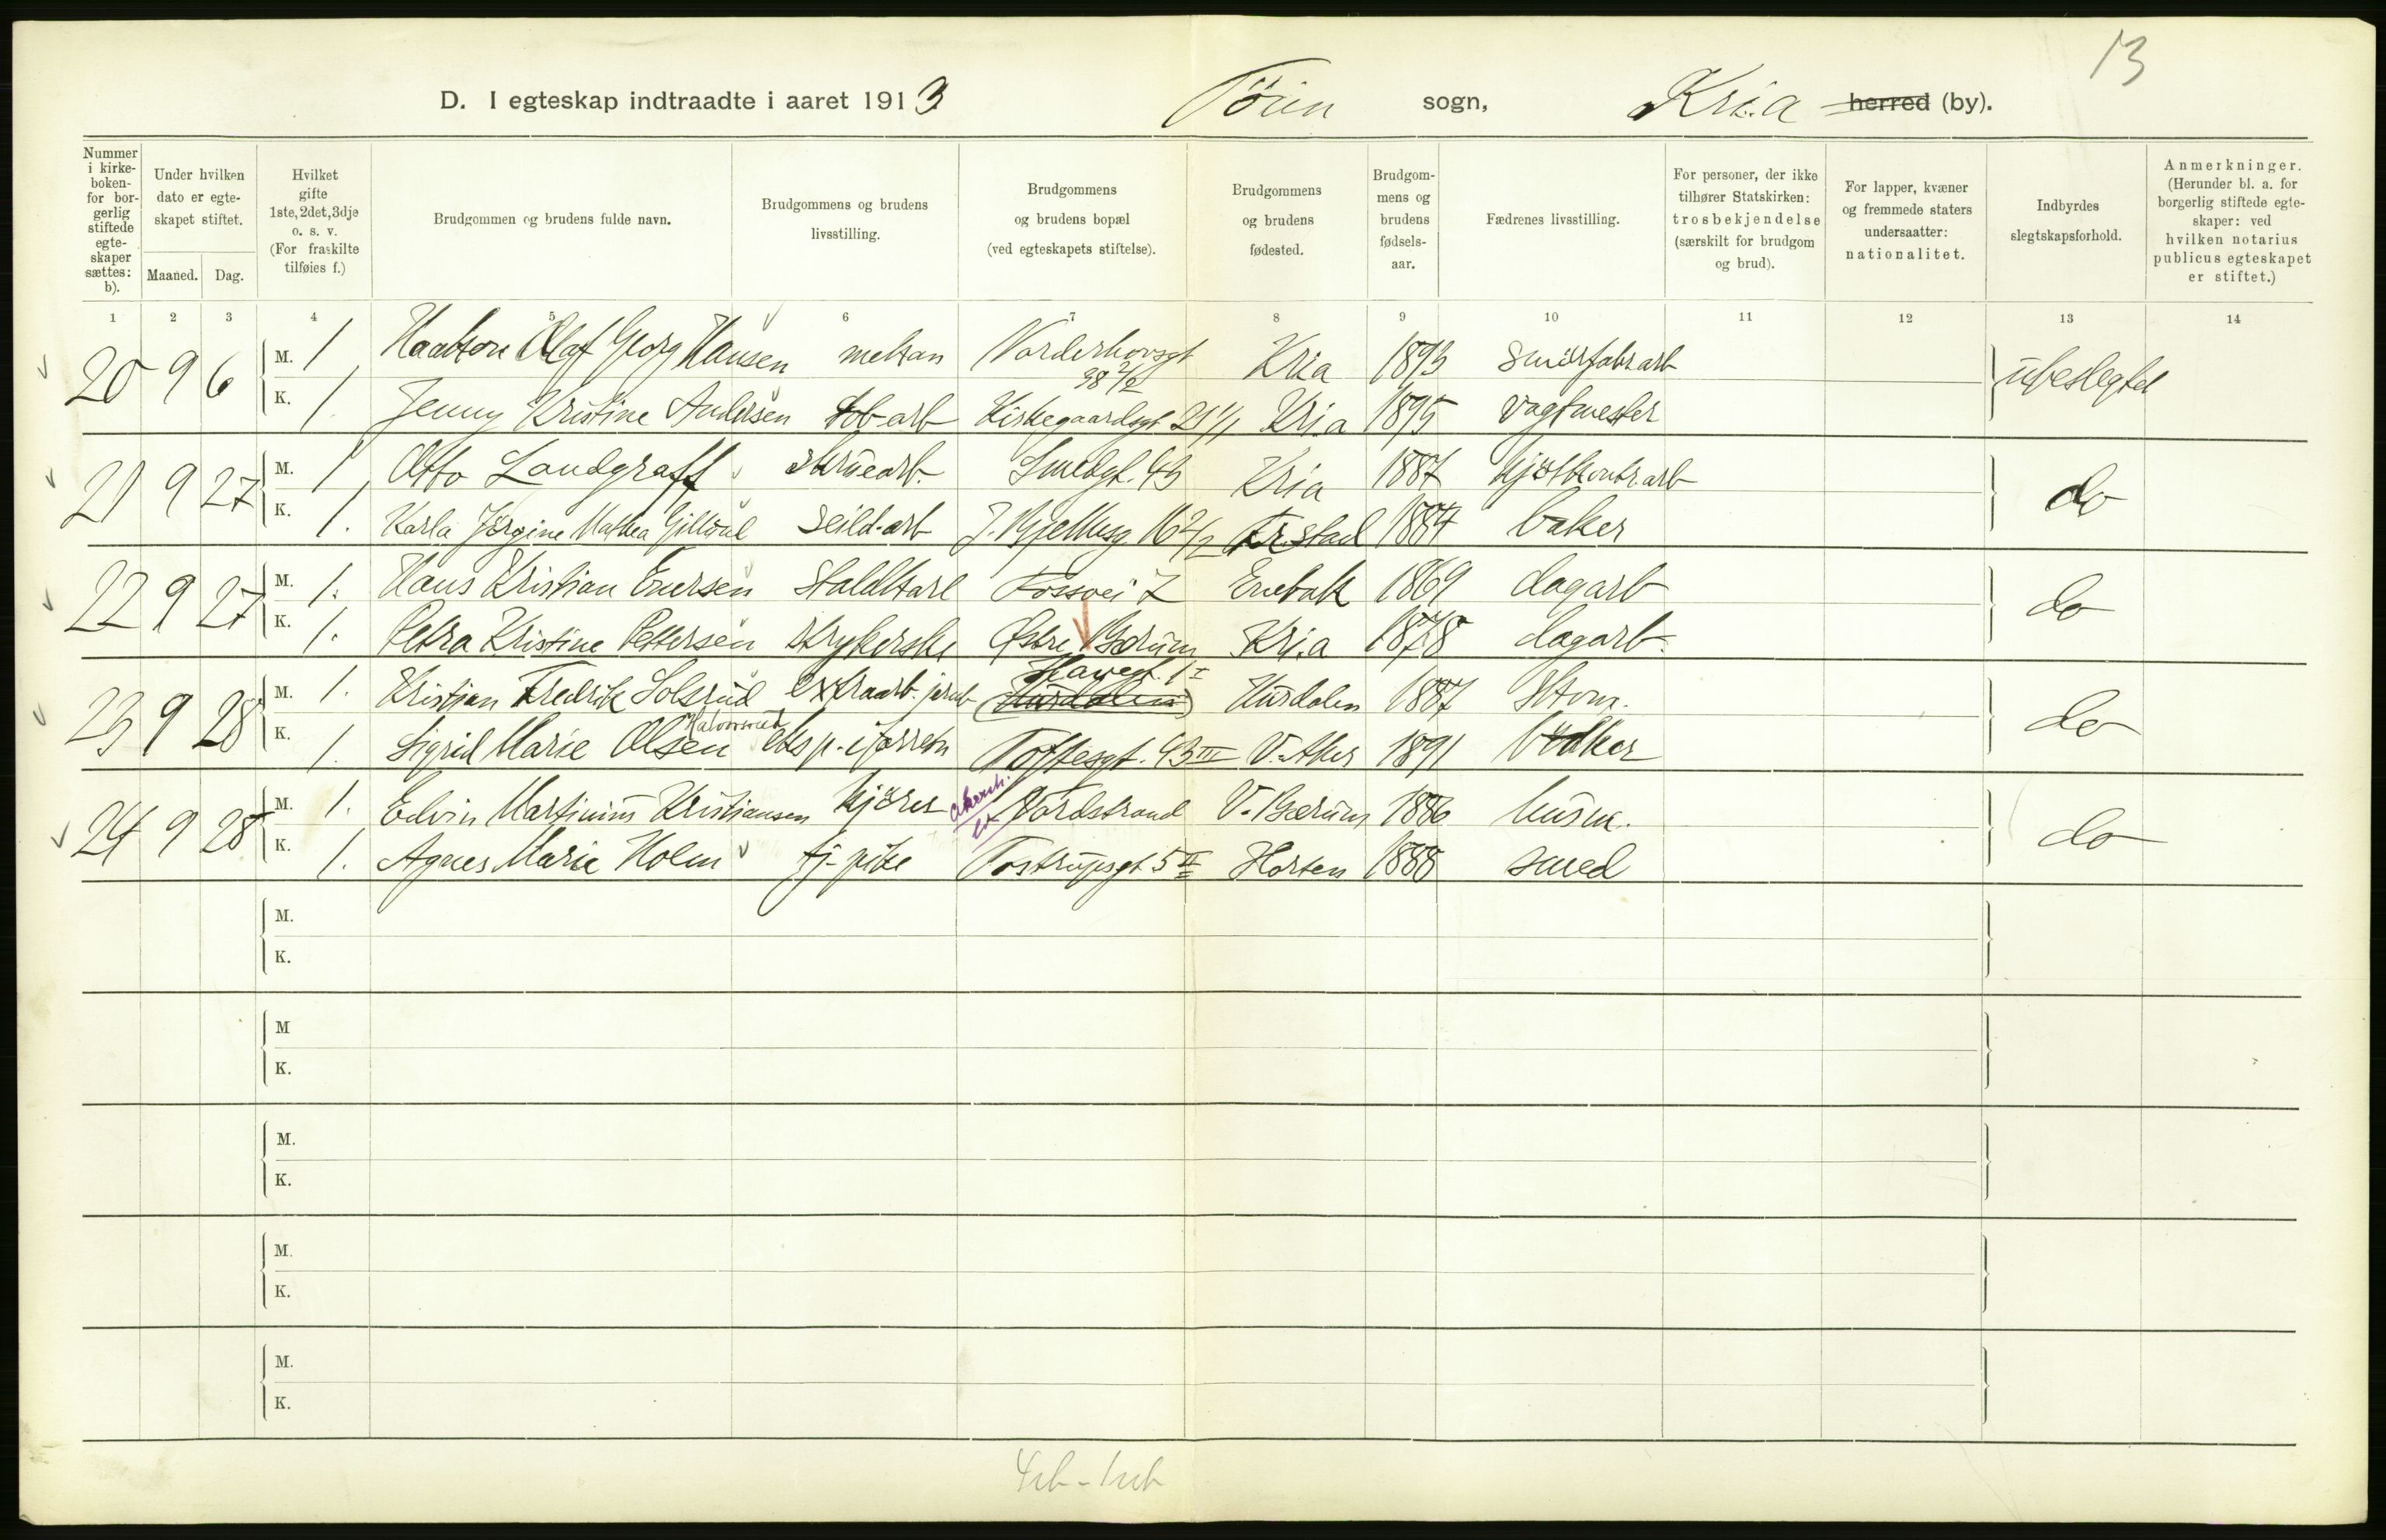 13
D. I egteskap indtraadte i aaret 1913 Töien sogn, Kria herred (by).
Nummer i kirke-boken- for bor-gerlig stiftede egte-skaper sættes: b).
Under hvilken dato er egte-skapet stiftet.
Maaned. Dag.
Hvilket gifte 1ste, 2det, 3dje o. s. v. (For fraskilte tilføies f.)
Brudgommen og brudens fulde navn.
Brudgommens og brudens livsstilling.
Brudgommens og brudens bopæl (ved egteskapets stiftelse).
Brudgommens og brudens fødested.
Brudgom-mens og brudens fødsels-aar.
Fædrenes livsstilling.
For personer, der ikke tilhører Statskirken: trosbekjendelse (særskilt for brudgom og brud).
For lapper, kvæner og fremmede staters undersaatter: nationalitet.
Indbyrdes slegtskapsforhold.
Anmerkninger. (Herunder bl. a. for borgerlig stiftede egte-skaper: ved hvilken notarius publicus egteskapet er stiftet.)
1 2 3 4 5 6 7 8 9 10 11 12 13 14
20 9 6 M. 1 Haakon Olaf Georg Hansen mekan Norderhovsgt 38 2/2 Kria 1893 Smörfabrarb ubeslegtet
K. 1. Jenny Kristine Andersen tob-arb Kirkegaardsgt 21 1/1 Kria 1895 vagtmester
21 9 27 M. 1 Otto Landgraff skruearb. Smedgt. 43 Kria 1887 kjötkontrarb do
K. 1. Karla Jörgine Mathea seild-arb J. Kjelbsg. 16 2/2 Fr.stad 1884 baker
22 9 27 M. 1. Hans Kristian Enersen Staldkarl Fossvei 7 Enebak 1869 dagarb do
K. 1. Petra Kristine Pettersen strykerske Østre Bærum Kria 1878 dagarb.
23 9 28 M. 1. Kristian Fredrik Solsrud extraarb. jernb Hurdalen 1887 do
K. 1. Sigrid Marie Olsen Halvorsrud eksp. i forretn Toftesgt. 43 III V. Aker 1891 bödker
24 9 28 M. 1. Edvin Martinius Kristiansen kjörer Nordstrand V. Bærum 1886 husm. do
K. 1. Agnes Marie Holm tj-pike Tostrupsgt 5 II Horten 1888 smed
M.
K.
M
K.
M.
K.
M.
K.
M.
K.